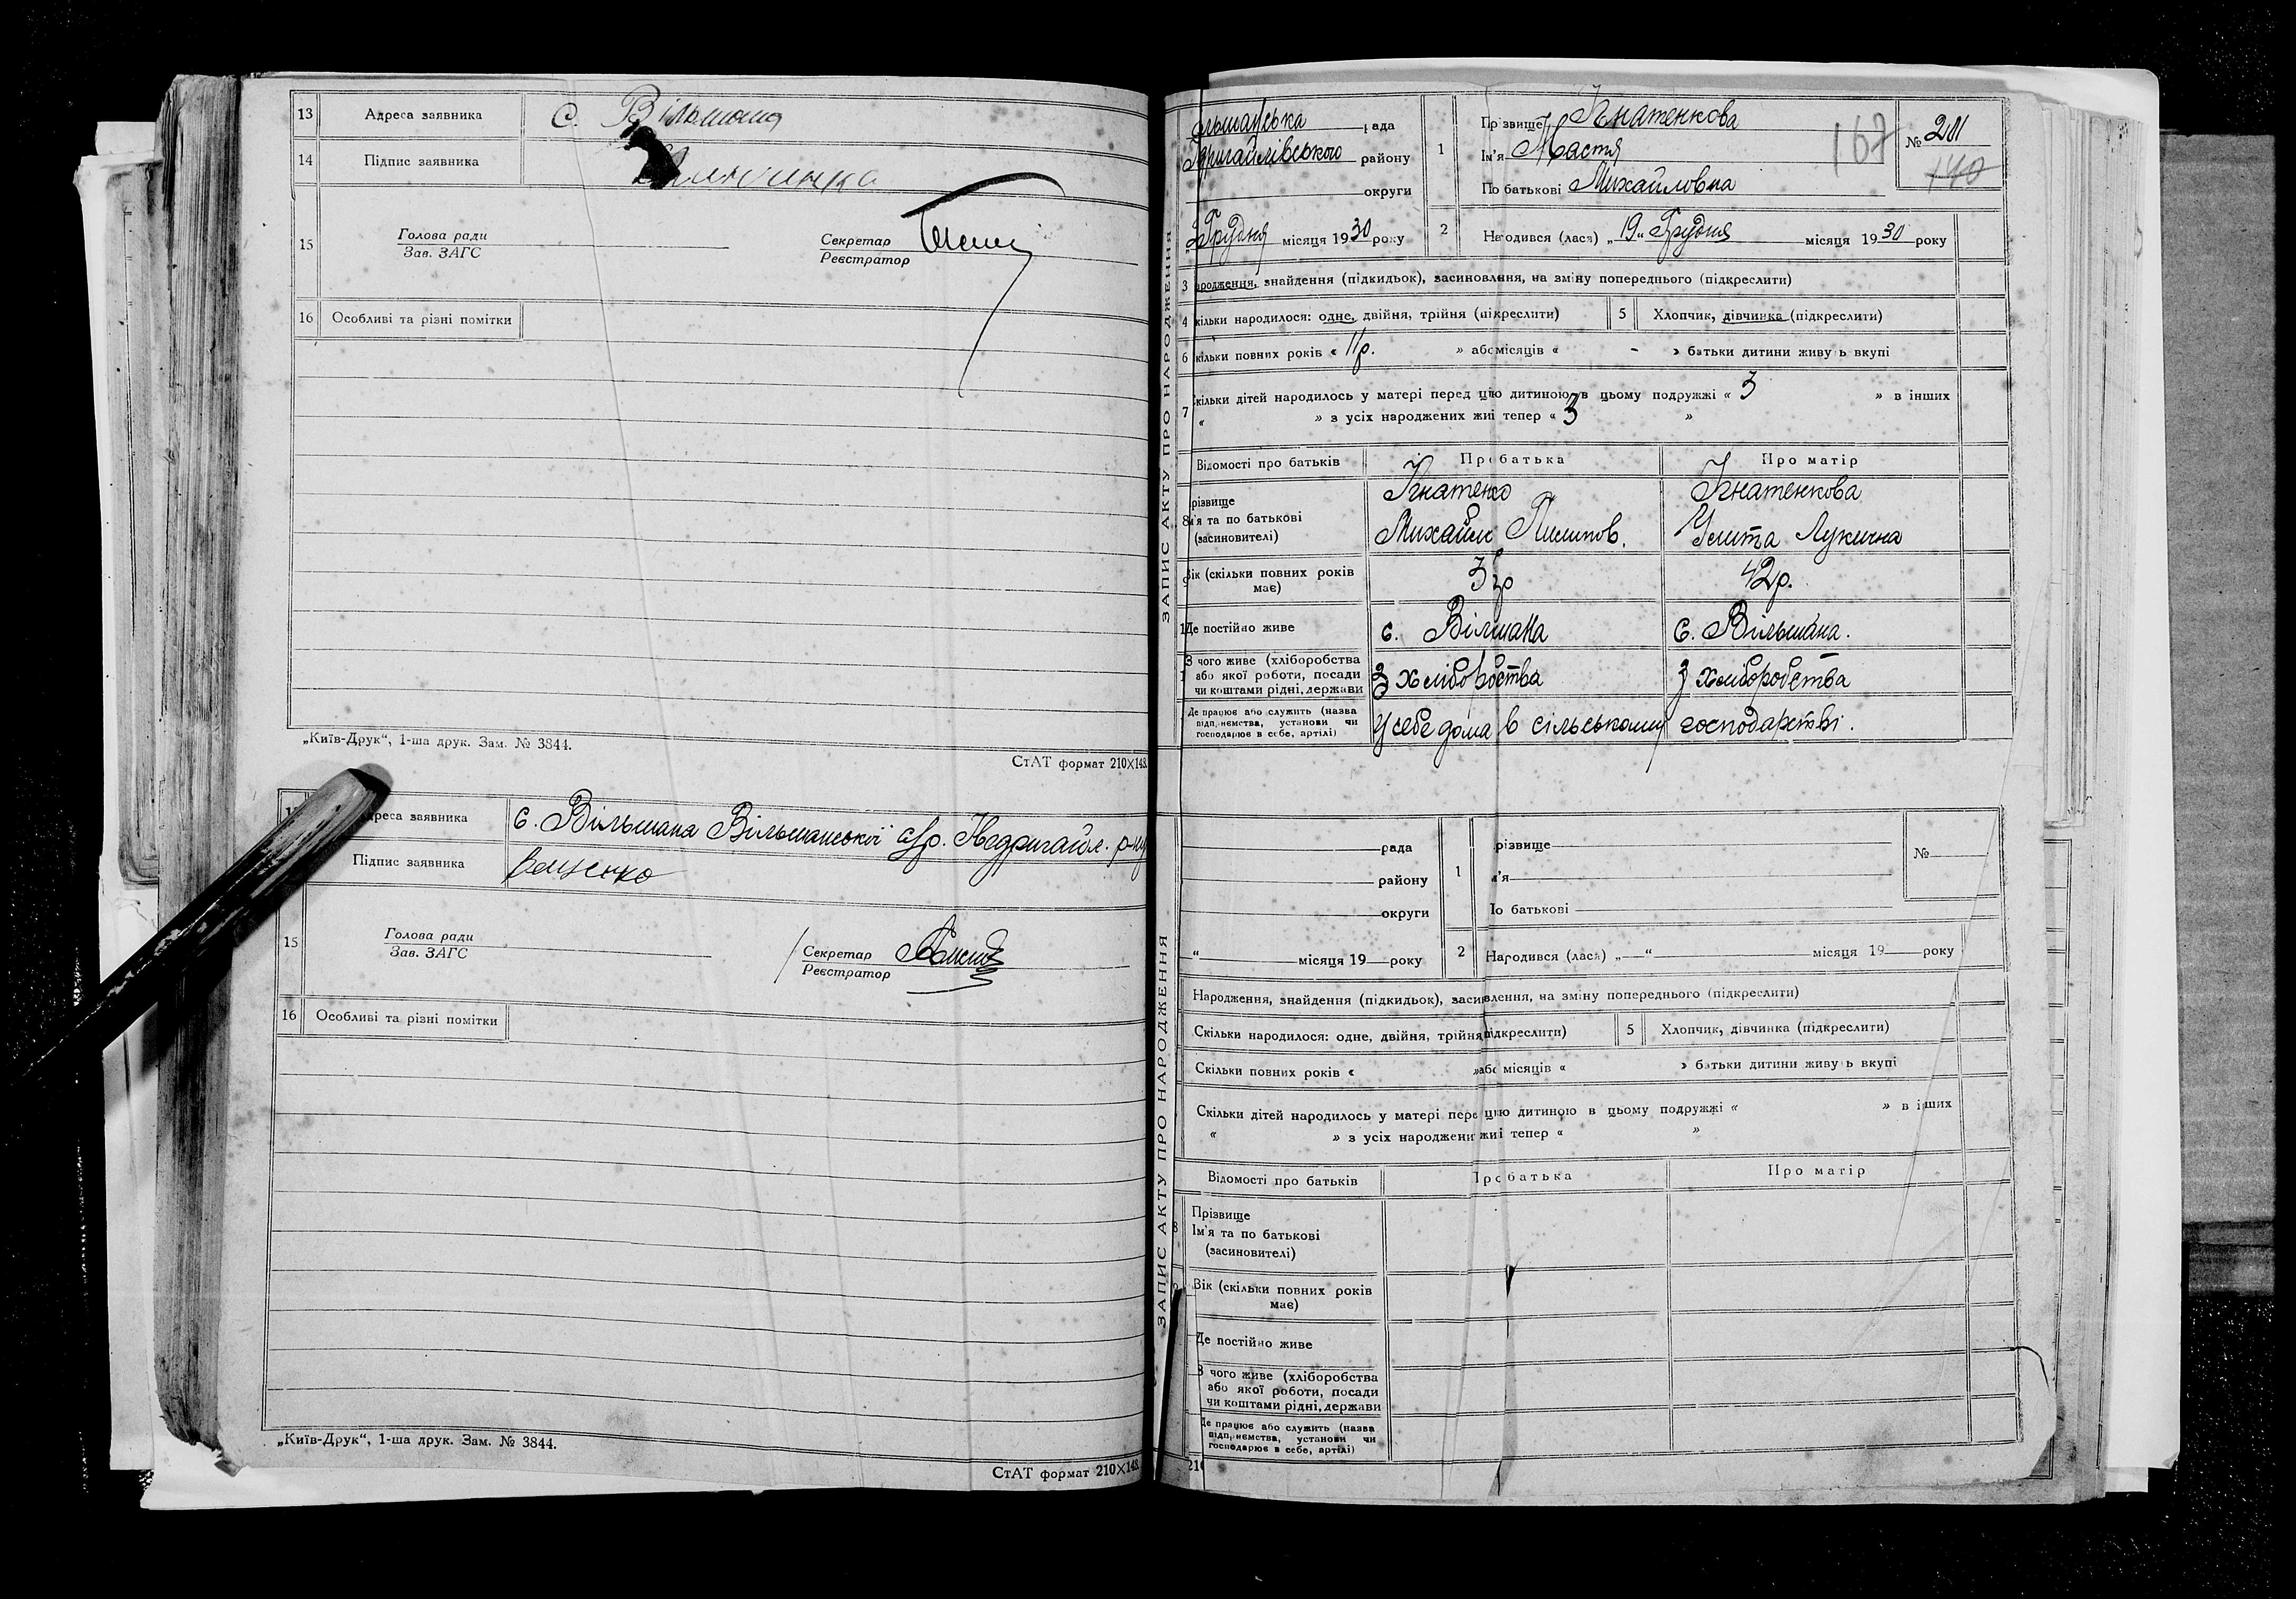 13 Адреса заявника с. Вільшана
14 Підпис заявника
15 Голова ради
Зав. ЗАГС
Секретар
Реєстратор
16 Особливі та різні помітки
„Київ-Друк“, 1-ша друк. Зам. № 3844.
СтАТ формат 210×148.
Адреса заявника с. Вільшана Вільшанської с/р. Недригайл. р-ну
Підпис заявника
15 Голова ради
Зав. ЗАГС
Секретар
Реєстратор
16 Особливі та різні помітки
„Київ-Друк“, 1-ша друк. Зам. № 3844.
СтАТ формат 210×148.
ЗАПИС АКТУ ПРО НАРОДЖЕННЯ
льшанська рада
дригайлівського району
округи
Грудня місяця 1930 року
1 Прізвище Ігнатенкова
Ім'я Настя
По батькові Михайловна
167
№ 281
140
2 Народився (лася) „19“ Грудня місяця 1930 року
3 ародження, знайдення (підкидьок), засиновлення, на зміну попереднього (підкреслити)
4 кільки народилося: одне, двійня, трійня (підкреслити) 5 Хлопчик, дівчинка (підкреслити)
6 кільки повних років « 11р. » або місяців « - » батьки дитини живуть вкупі
7 кільки дітей народилось у матері перед цією дитиною в цьому подружжі « 3 » в інших
« » з усіх народжених живі тепер « 3 »
Відомості про батьків Про батька Про матір
8 різвище Ігнатенко Ігнатенкова
м'я та по батькові Михайло Пилипов. Улита Лукична
(засиновителі)
9 Вік (скільки повних років має) 42р.
Де постійно живе с. Вільшана с. Вільшана.
З чого живе (хліборобства З хліборобства З хліборобства
або якої роботи, посади
чи коштами рідні, держави
Де працює або служить (назва підприємства, установи чи господарює в себе, артілі) У себе дома в сільському господарстві.
ЗАПИС АКТУ ПРО НАРОДЖЕННЯ
рада
району
округи
“ місяця 19 року
1 різвище
м'я
По батькові
№
2 Народився (лася) „ “ місяця 19 року
Народження, знайдення (підкидьок), засиновлення, на зміну попереднього (підкреслити)
Скільки народилося: одне, двійня, трійня підкреслити) 5 Хлопчик, дівчинка (підкреслити)
Скільки повних років « » або місяців « » батьки дитини живуть вкупі
Скільки дітей народилось у матері перед цією дитиною в цьому подружжі « » в інших
« » з усіх народжени живі тепер « »
Відомості про батьків Про батька Про матір
8 Прізвище
Ім'я та по батькові
(засиновителі)
Вік (скільки повних років
має)
Де постійно живе
З чого живе (хліборобства
або якої роботи, посади
чи коштами рідні, держави
Де працює або служить (назва
підприємства, установи чи
господарює в себе, артілі)